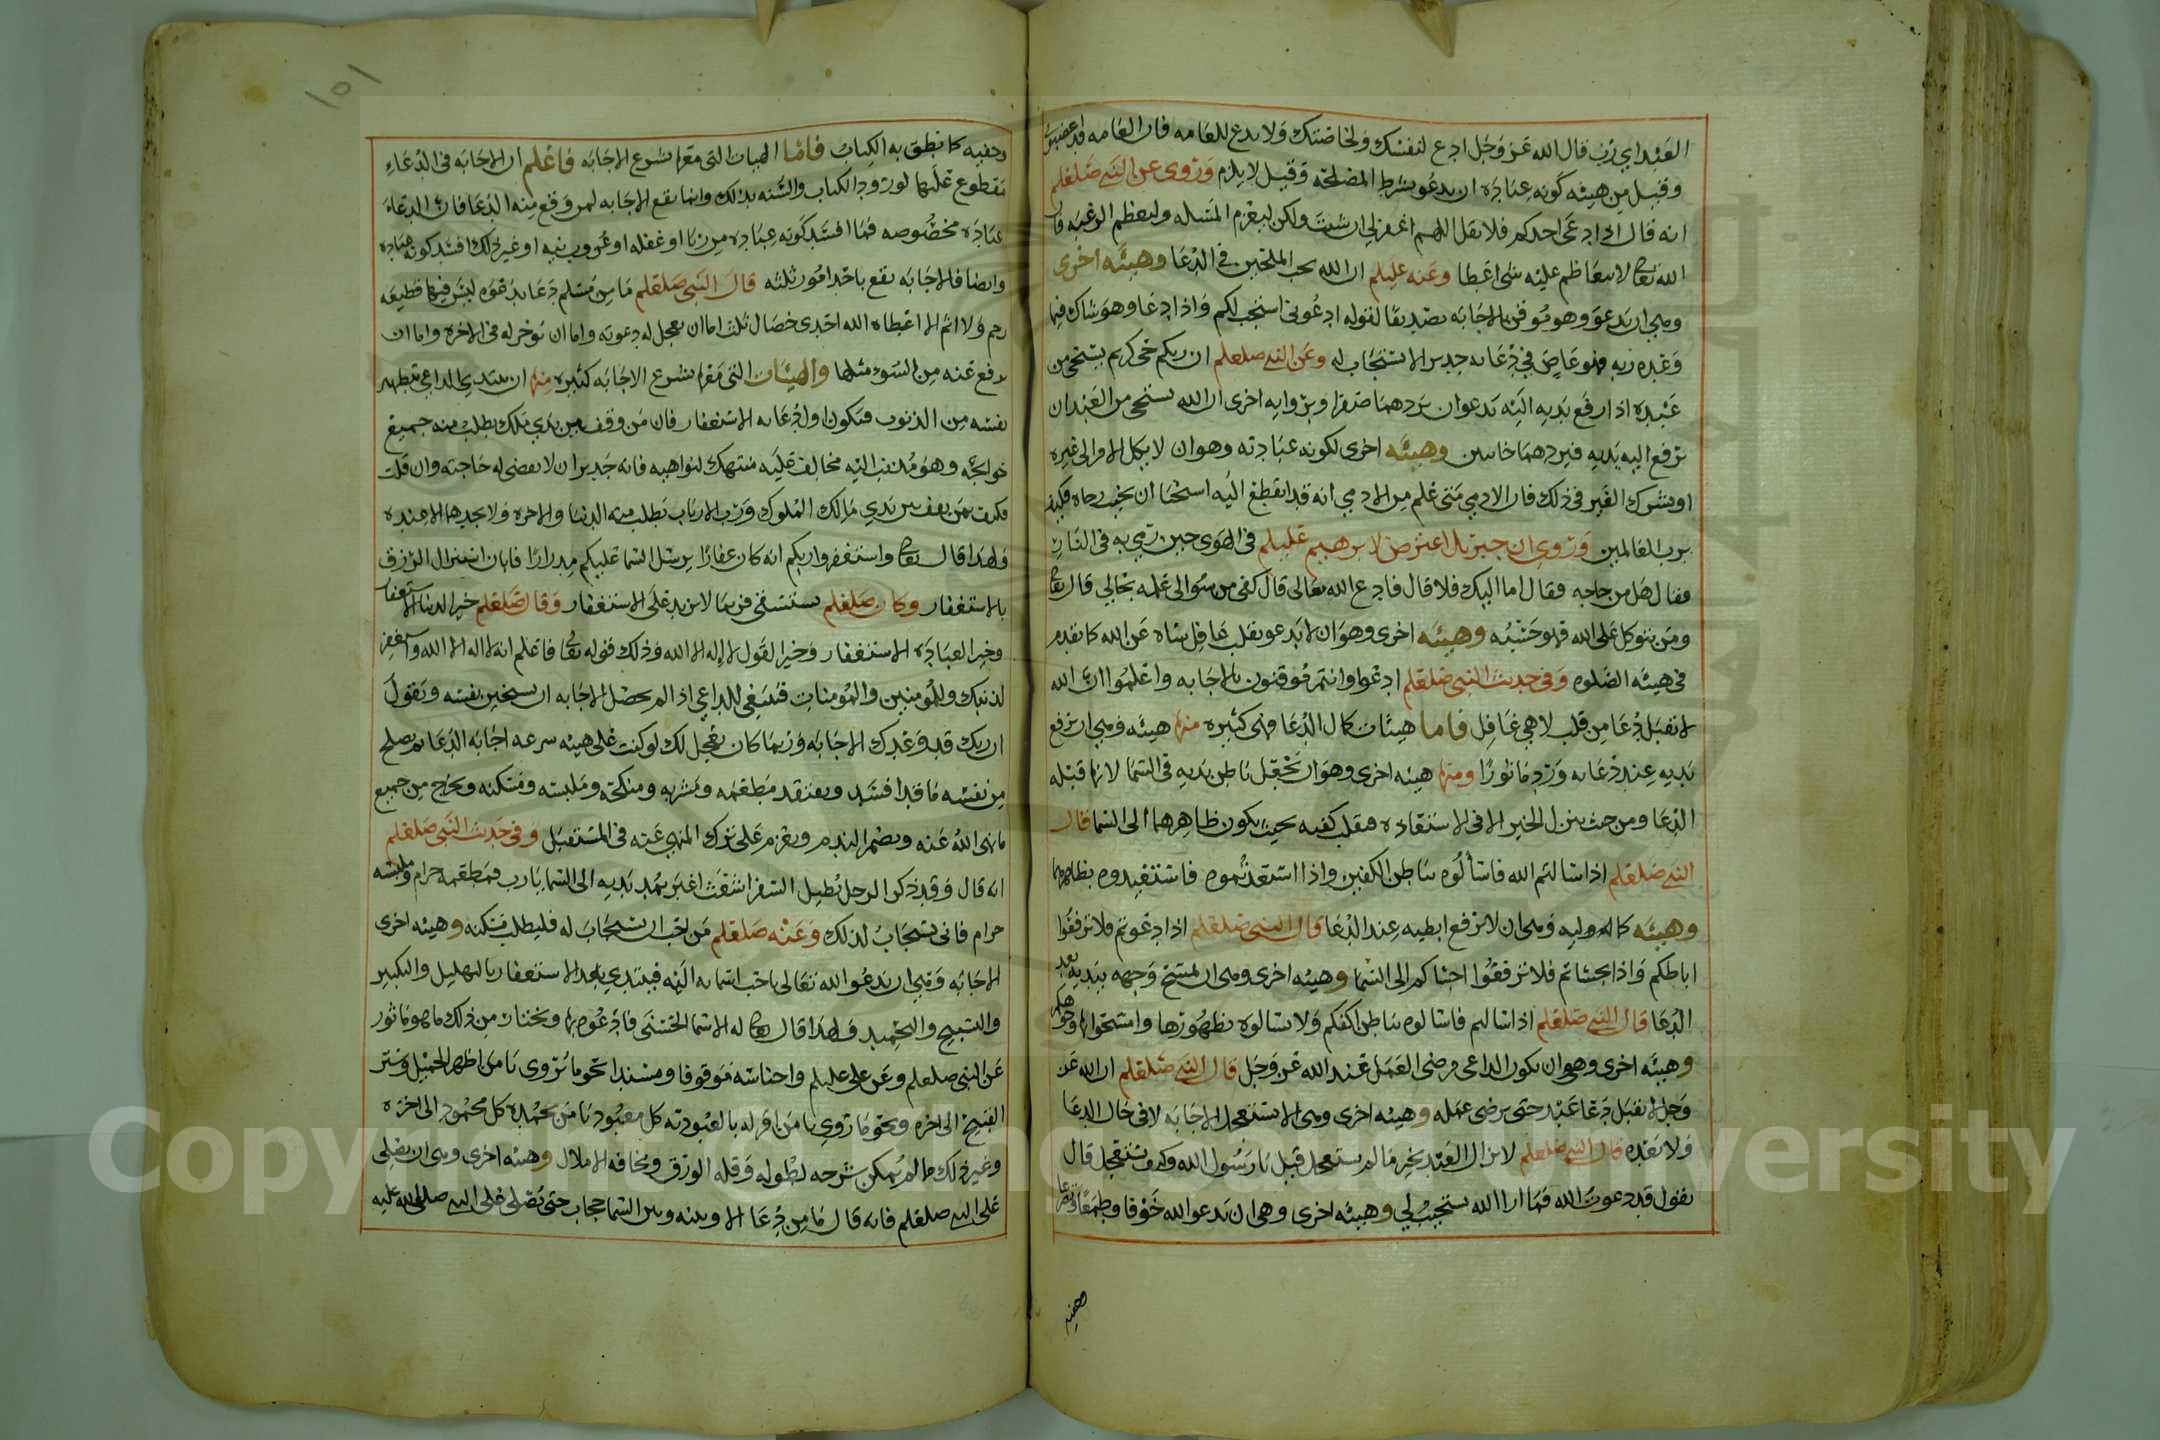 العبد اي رب قال الله عز وجل ادع لنفسك ولخاصتك ولا تدع للعامه فان العامه قد اغضبتني
وقيل من هيئه كونه عباده ان يدعو بشرط المصلحة وقيل لا يلزم وروى عن النبي صلعلم
انه قال اذا دعى احدكم فلا يقل اللهم اغفر لي ان شئت ولكن ليعزم المسله وليعظم الرغبه فان
الله تعالى لا يتعاظم عليه شي اعطا وعنه عليلم ان الله يحب الملحين في الدعا وهيئه اخرى
وهي ان يدعو وهو موقن بالاجابه تصديقا لقوله ادعوني استجب لكم واذا دعا وهو شاك فيما
وعده ربه فهو عاص في دعائه جدير الا يستجاب له وعن النبي صلعلم ان ربكم حي كريم يستحي من
عبده اذا رفع يديه اليه ان يردهما صفرا وبروايه اخرى ان الله يستحي من العبد ان
يرفع اليه يديه فيردهما خاسئين وهيئه اخرى لكونه عبادته وهو ان لا يكل الامر الى غيره
او يشرك الغير في ذلك فان الادمي متى علم من الادمي انه قد انقطع اليه استحيا ان يخيب رجاه فكيف
برب العالمين وروي ان جبريل اعترض لابرهيم عليلم في الهوى حين رمي به في النار
فقال هل من حاجه فقال اما اليك فلا قال فادع الله تعالى قال كفى من سوالي علمه بحالي قال تعالى
ومن يتوكل على الله فهو حسبه وهيئه اخرى وهو ان لا يدعو بقلب غافل ساه عن الله كما تقدم
في هيئه الصلوه وفي حديث النبي صلعلم ادعوا وانتم موقنون بالاجابه واعلموا ان الله
لا يقبل دعا من قلب لاهي غافل فاما هيئات كمال الدعا فهي كثيره منها هيئه وهي ان يرفع
يديه عند دعائه ورد ماثورا ومنها هيئه اخرى وهو ان يجعل باطن يديه في السما لانها قبله
الدعا ومن حيث ينزل الخير الا في الاستعاذه فيقلب كفيه بحيث يكون ظاهرهما الى السما قال
النبي صلعلم اذا سالتم الله فاسألوه بباطن الكفين واذا استعذتموه فاستعيذوه بظاهرهما
وهيئه وهي ان لا يرفع ابطيه عند الدعا قال النبي صلعلم اذا دعوتم فلا ترفعوا
اباطكم واذا تجشاتم فلا ترفعوا اجشاكم الى السما وهيئه اخرى وهي ان يمسح وجهه بيديه بعد
الدعا قال النبي صلعلم اذا سالتم فاسالوه بباطن اكفكم ولا تسالوه بظهورها وامسحوا بها وجوهكم
وهيئه اخرى وهو ان يكون الداعي مرضي العمل عند الله عز وجل قال النبي صلعلم ان الله عز
وجل لا يقبل دعا عبد حتى يرضى عمله وهيئه اخرى وهي الا يستعجل الاجابه لا في حال الدعا
ولا بعده قال النبي صلعلم لا يزال العبد بخير ما لم يستعجل قيل يا رسول الله وكيف يستعجل قال
يقول قد دعوت الله فما ارا الله يستجيب لي وهيئه اخرى وهي ان يدعو الله خوفا وطمعا وتضرعا
وخفيه
وخفيه كما نطق به الكتاب فاما الهيات التي معها تسرع الاجابه فاعلم ان الاجابه في الدعاء
مقطوع عليها لورود الكتاب والسنه بذلك وانما تقع الاجابه لمن وقع منه الدعا فان الدعاء
عباده مخصوصه فما افسد كونه عباده من ريا او غفله او عزوب نيه او غير ذلك افسد كونه عباده
وايضا فالاجابه تقع باحد امور ثلثه قال النبي صلعلم ما من مسلم دعا بدعوه ليس فيها قطيعه
رحم ولا اثم الا اعطاه الله احدى خصال ثلث اما ان يعجل له دعوته واما ان توخر له في الاخره واما ان
يدفع عنه من السوء مثلها والهيات التي معها تسرع الاجابه كثيره منها ان يبتدي الداعي بتطهير
نفسه من الذنوب فيكون اول دعائه الاستغفار فان من وقف بين يدي ملك يطلب منه جميع
حوايجه وهو مذنب اليه مخالف عليه منتهك لنواهيه فانه جدير ان لا تقضى له حاجته وان قلت
فكيف بمن يقف بين يدي مالك الملوك ورب الارباب يطلب منه الدنيا والاخره ولا يجدهما الا عنده
ولهذا قال تعالى واستغفروا ربكم انه كان غفارا يرسل السما عليكم مدرارا فابان استنزال الرزق
بالاستغفار وكان صلعلم يستسقي فربما لا يزيد على الاستغفار وقال صلعلم خير الدعا الاستغفار
وخير العباده الاستغفار وخير القول لا إله الا الله وذلك قوله تعالى فاعلم انه لا اله الا الله واستغفر
لذنبك وللمومنين والمومنات فينبغي للداعي اذا لم يحصل الاجابه ان يستخين نفسه ويقول
ان ربك قد وعدك الاجابه وربما كان يعجل لك لو كنت على هيئه سرعه اجابه الدعا ثم يصلح
من نفسه ما قد افسد ويفتقد مطعمه ومشربه ومنكحه وملبسه ومسكنه ويخرج من جميع
ما نهى الله عنه ويضمر الندم ويعزم على ترك المنهي عنه في المستقبل وفي حديث النبي صلعلم
انه قال وقد ذكر الرجل يطيل السفر اشعث اغبر يمد يديه الى السما يا رب فمطعمه حرام وملبسه
حرام فانى يستجاب لذلك وعنه صلعلم من احب ان يستجاب له فليطلب مسكنه وهيئه اخرى
الاجابه وهي ان يدعو الله تعالى باحب اسمائه اليه فيبتدي بعد الاستغفار بالتهليل والتكبير
والتسبيح والتحميد ولهذا قال تعالى له الاسما الحسنى فادعوه بها ويختار من ذلك ما هو ماثور
عن النبي صلعلم وعن علي عليلم واجناسه موقوفا ومسندا نحو ما يروى يا من اظهر الجميل وستر
القبيح الى اخره ونحو ما روي يا من اقر له بالعبوديه كل معبود يا من يحمده كل محمود الى اخره
وغير ذلك مما لم يمكن شرحه لطوله وقله الورق ومخافه الاملال وهيئه اخرى وهي ان يصلى
على النبي صلعلم فانه قال ما من دعا الا وبينه وبين السما حجاب حتى يصلى على النبي صلى الله عليه
١٥١
Copyright © King Saud University